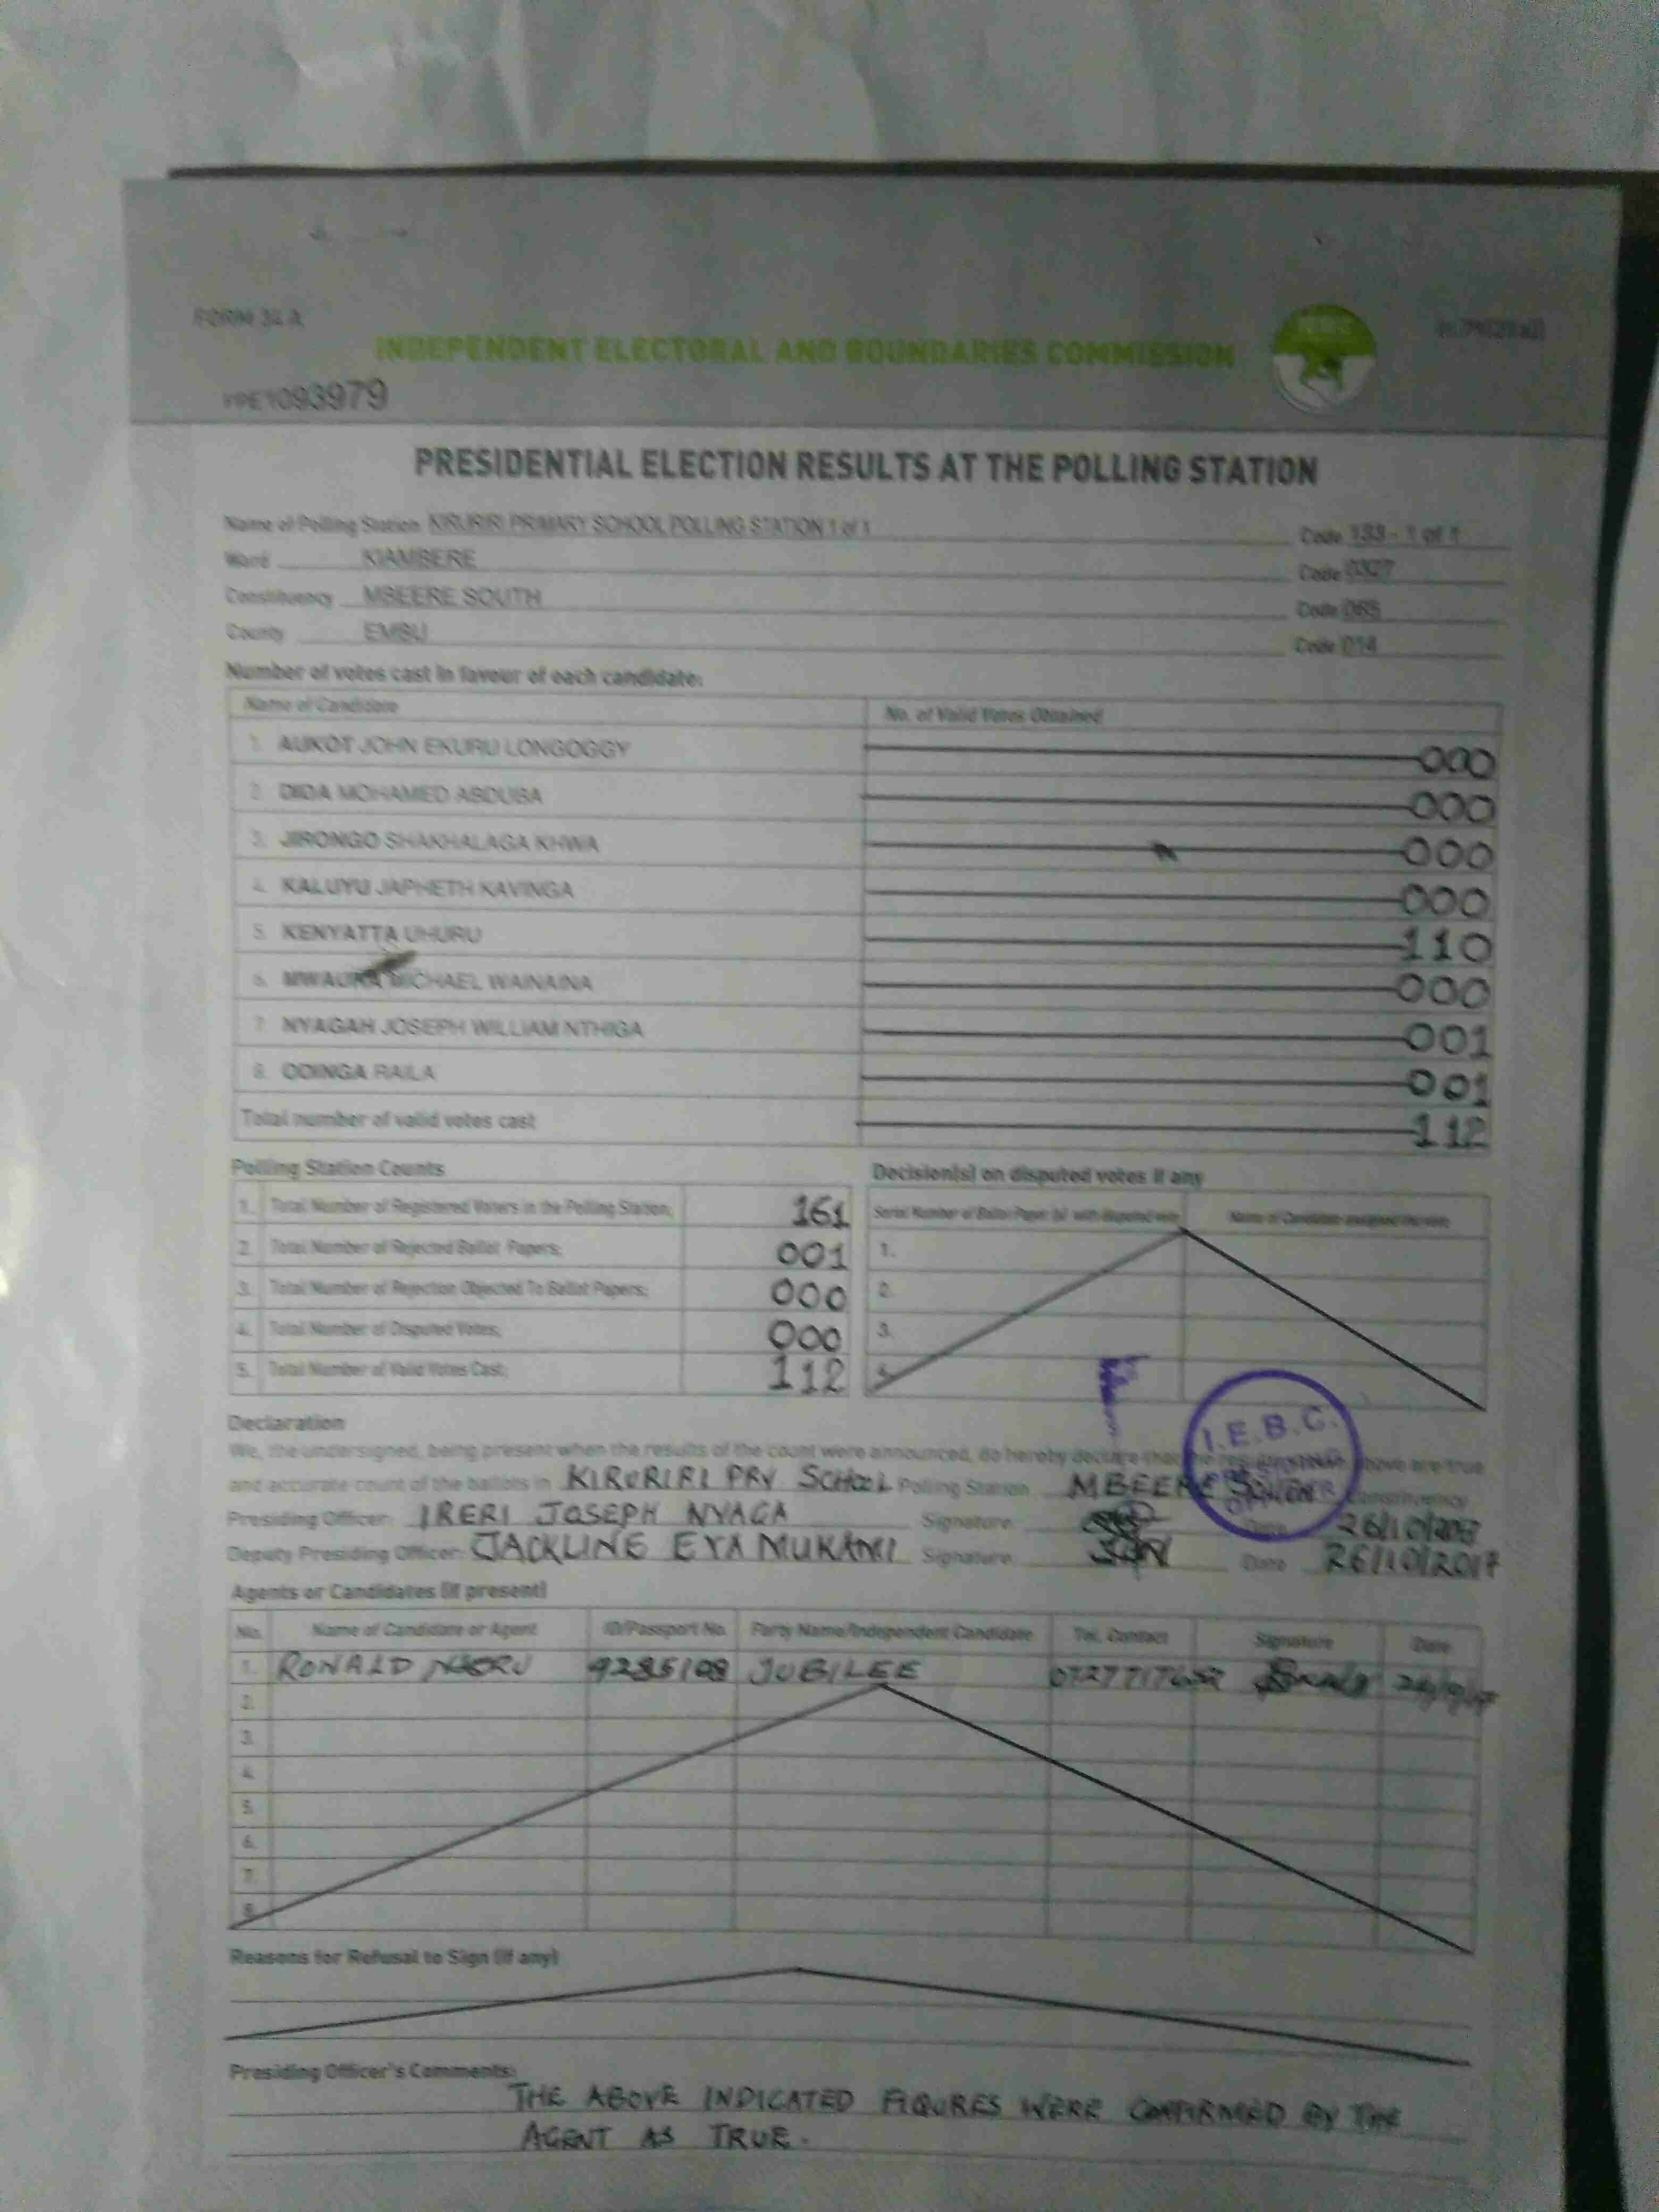 FORM 34 A
INDEPENDENT ELECTORAL AND BOUNDARIES COMMISSION
PRE1093979
PRESIDENTIAL ELECTION RESULTS AT THE POLLING STATION
Name of Polling Station KIRURIRI PRIMARY SCHOOL POLLING STATION 1 of 1 Code 133 - 1 of 1
Ward KIAMBERE Code 0327
Constituency MBEERE SOUTH Code 065
County EMBU Code 014
Number of votes cast in favour of each candidate:
Name of Candidate No. of Valid Votes Obtained
1. AUKOT JOHN EKURU LONGOGGY 000
2. DIDA MOHAMED ABDUBA 000
3. JIRONGO SHAKHALAGA KHWA 000
4. KALUYU JAPHETH KAVINGA 000
5. KENYATTA UHURU 110
6. MWAURA MICHAEL WAINAINA 000
7. NYAGAH JOSEPH WILLIAM NTHIGA 001
8. ODINGA RAILA 001
Total number of valid votes cast 112
Polling Station Counts
1. Total Number of Registered Voters in the Polling Station; 161
2. Total Number of Rejected Ballot Papers; 001
3. Total Number of Rejection Objected To Ballot Papers; 000
4. Total Number of Disputed Votes; 000
5. Total Number of Valid Votes Cast; 112
Decision(s) on disputed votes if any
Serial Number of Ballot Paper (s) with disputed vote Name of Candidate assigned the vote
1.
2.
3.
4.
I.E.B.C.
Declaration
We, the undersigned, being present when the results of the count were announced, do hereby declare that the results above are true
and accurate count of the ballots in KIRURIRI PRY. SCHOOL Polling Station MBEERE SOUTH Constituency
Presiding Officer: IRERI JOSEPH NYAGA Signature Date 26/10/2017
Deputy Presiding Officer: JACKLINE EVA MUKAMI Signature Date 26/10/2017
Agents or Candidates (if present)
No. Name of Candidate or Agent ID/Passport No. Party Name/Independent Candidate Tel. Contact Signature Date
1. RONALD JUBILEE
2.
3.
4.
5.
6.
7.
8.
Reasons for Refusal to Sign (if any)
Presiding Officer's Comments:
THE ABOVE INDICATED FIGURES WERE CONFIRMED BY THE
AGENT AS TRUE.